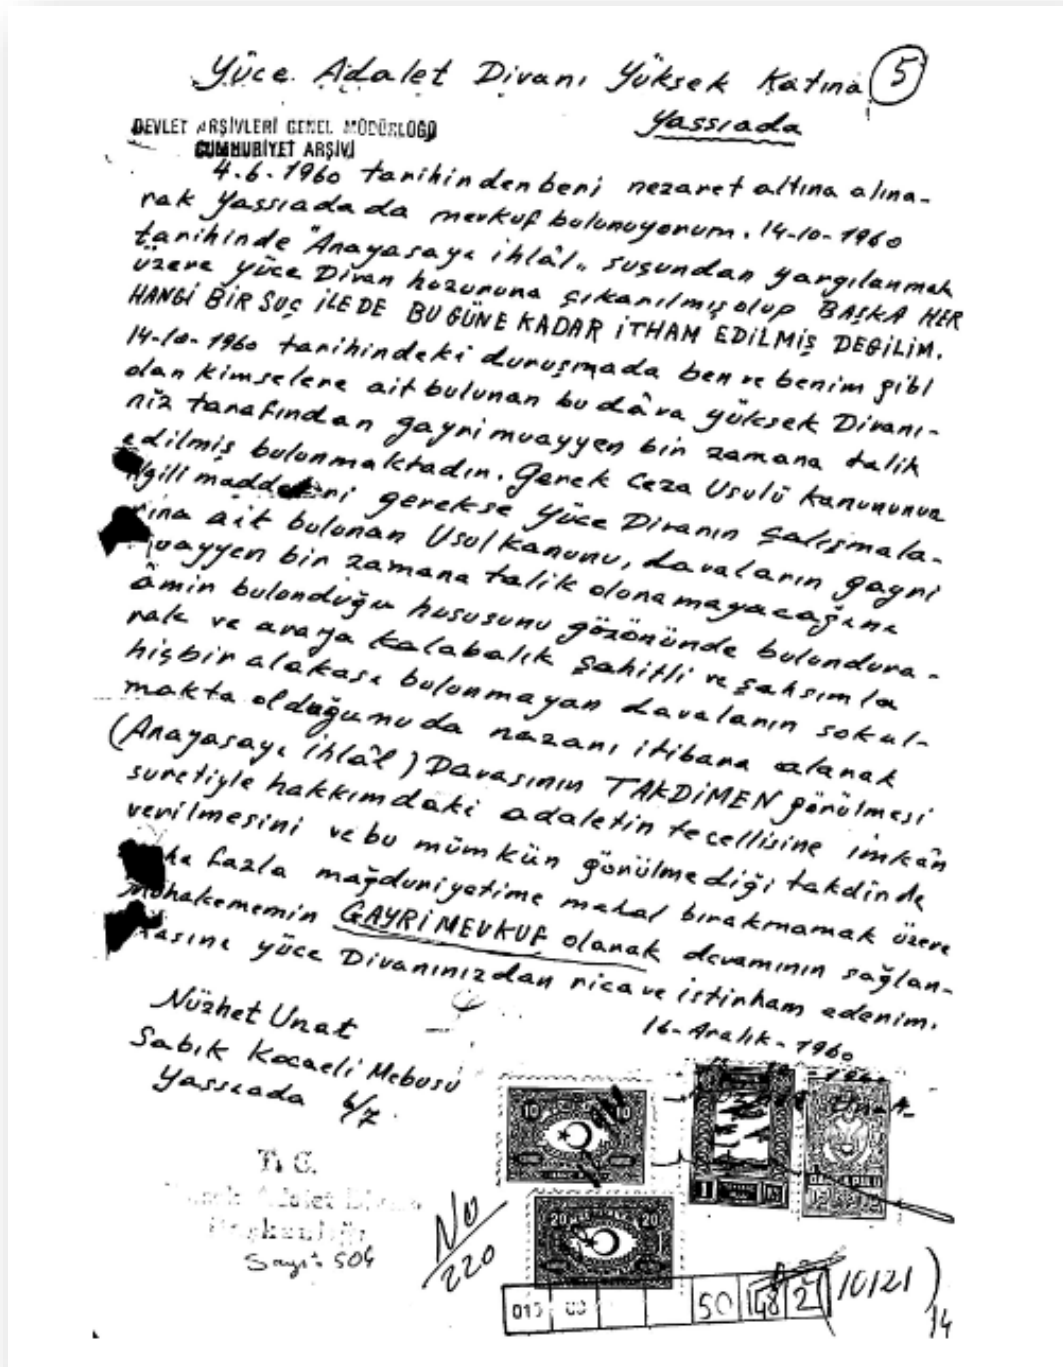 Yüce Adalet Divanı Yüksek Katına 5
Yassıada
DEVLET ARŞİVLERİ GENEL MÜDÜRLÜĞÜ
CUMHURİYET ARŞİVİ
4.6.1960 tarihindenberi nezaret altına alına-
rak Yassıadada mevkuf bulunuyorum. 14-10-1960
tarihinde "Anayasayı ihlâl" suçundan yargılanmak
üzere yüce Divan huzuruna çıkarılmış olup BAŞKA HER
HANGİ BİR SUÇ İLE DE BUGÜNE KADAR İTHAM EDİLMİŞ DEĞİLİM.
14-10-1960 tarihindeki duruşmada ben ve benim gibi
olan kimselere ait bulunan bu dâva yüksek Divanı-
nız tarafından gayri muayyen bir zamana talik
edilmiş bulunmaktadır. Gerek Ceza Usulü kanununun
ilgili maddeleri gerekse Yüce Divanın çalışmala-
rına ait bulunan Usul kanunu, davaların gayri
muayyen bir zamana talik olunamayacağını
âmir bulunduğu hususunu gözönünde bulundura-
rak ve araya kalabalık şahitli ve şahsımla
hiçbir alakası bulunmayan davaların sokul-
makta olduğunu da nazarı itibara alarak
(Anayasayı İhlâl) Davasının TAKDİMEN görülmesi
suretiyle hakkımdaki adaletin tecellisine imkân
verilmesini ve bu mümkün görülmediği takdirde
daha fazla mağduriyetime mahal bırakmamak üzere
Muhakememin GAYRİ MEVKUF olarak devamının sağlan-
masını yüce Divanınızdan rica ve istirham ederim.
16-Aralık-1960
Nüzhet Unat
Sabık Kocaeli Mebusu
Yassıada
T. C.
Sayı: 504
No
220
10 10
20 20
1
50 148 21 10121
14